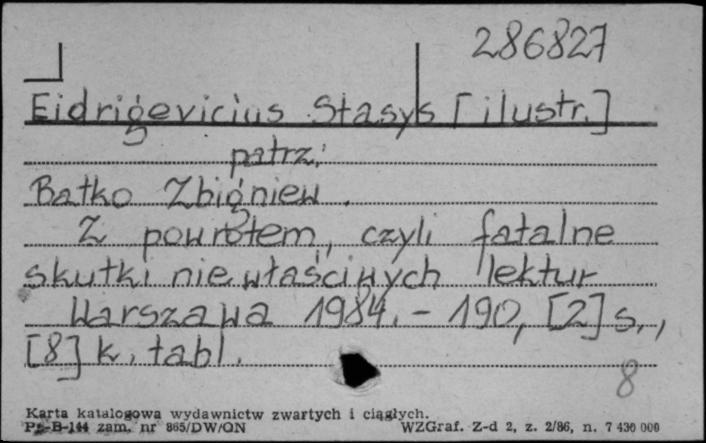 286827
Eidrigevicius Stasys [ilustr.]
patrz:
Batko Zbigniew.
Z powrotem, czyli fatalne
skutki niewłaściwych lektur
Warszawa 1984. - 190, [2] s.,
[8] k. tabl.
8
Karta katalogowa wydawnictw zwartych i ciągłych.
Pz-B-144 zam. nr 865/DW/ON WZGraf. Z-d 2, z. 2/86, n. 7 430 000